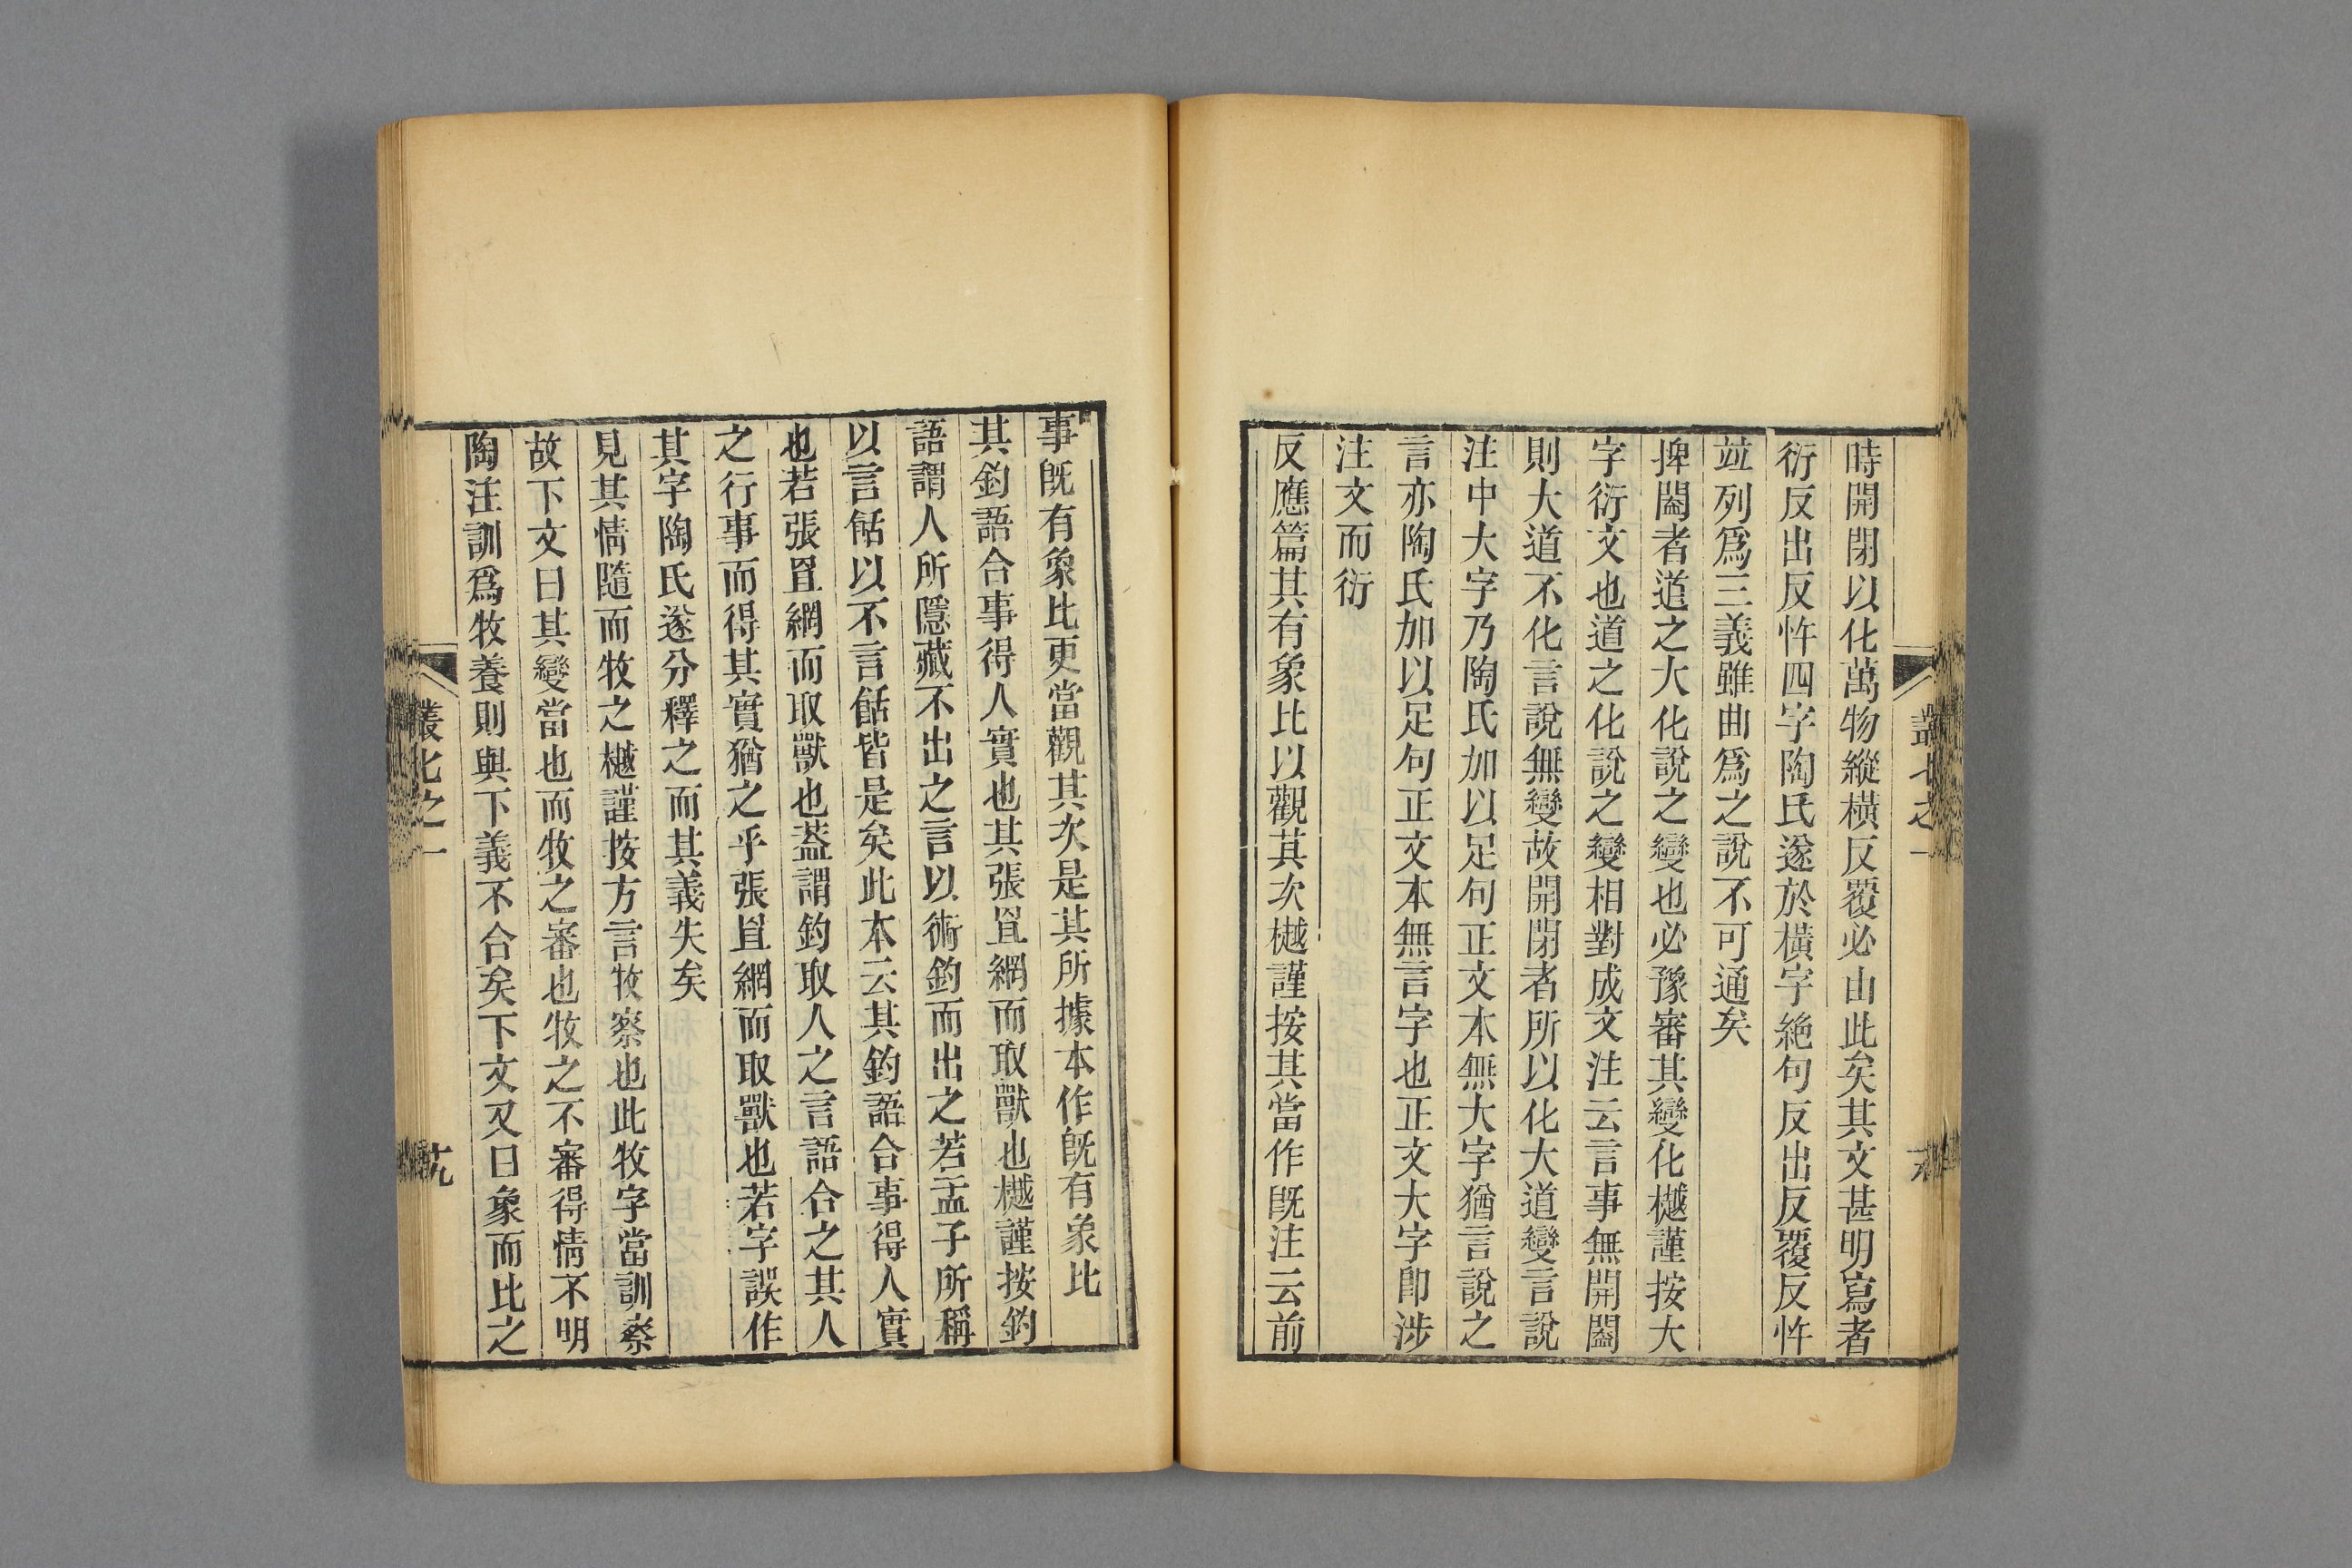 時開閉以化萬物縱橫反覆必由此矣其文甚明寫者
衍反出反忤四字陶氏遂於橫字絶句反出反覆反忤
竝列爲三義雖曲爲之說不可通矣
捭闔者道之大化說之變也必豫審其變化樾謹按大
字衍文也道之化說之變相對成文注云言事無開闔
則大道不化言說無變故開閉者所以化大道變言說
注中大字乃陶氏加以足句正文本無大字猶言說之
言亦陶氏加以足句正文本無言字也正文大字卽涉
注文而衍
反應篇其有象比以觀其次樾謹按其當作旣注云前
事旣有象比更當觀其次是其所據本作旣有象比
其釣語合事得人實也其張罝網而取獸也樾謹按釣
語謂人所隱藏不出之言以術釣而出之若孟子所稱
以言餂以不言餂皆是矣此本云其釣語合事得人實
也若張罝網而取獸也葢謂釣取人之言語合之其人
之行事而得其實猶之乎張罝網而取獸也若字誤作
其字陶氏遂分釋之而其義失矣
見其情隨而牧之樾謹按方言牧察也此牧字當訓察
故下文曰其變當也而牧之審也牧之不審得情不明
陶注訓爲牧養則與下義不合矣下文又曰象而比之
叢七之一